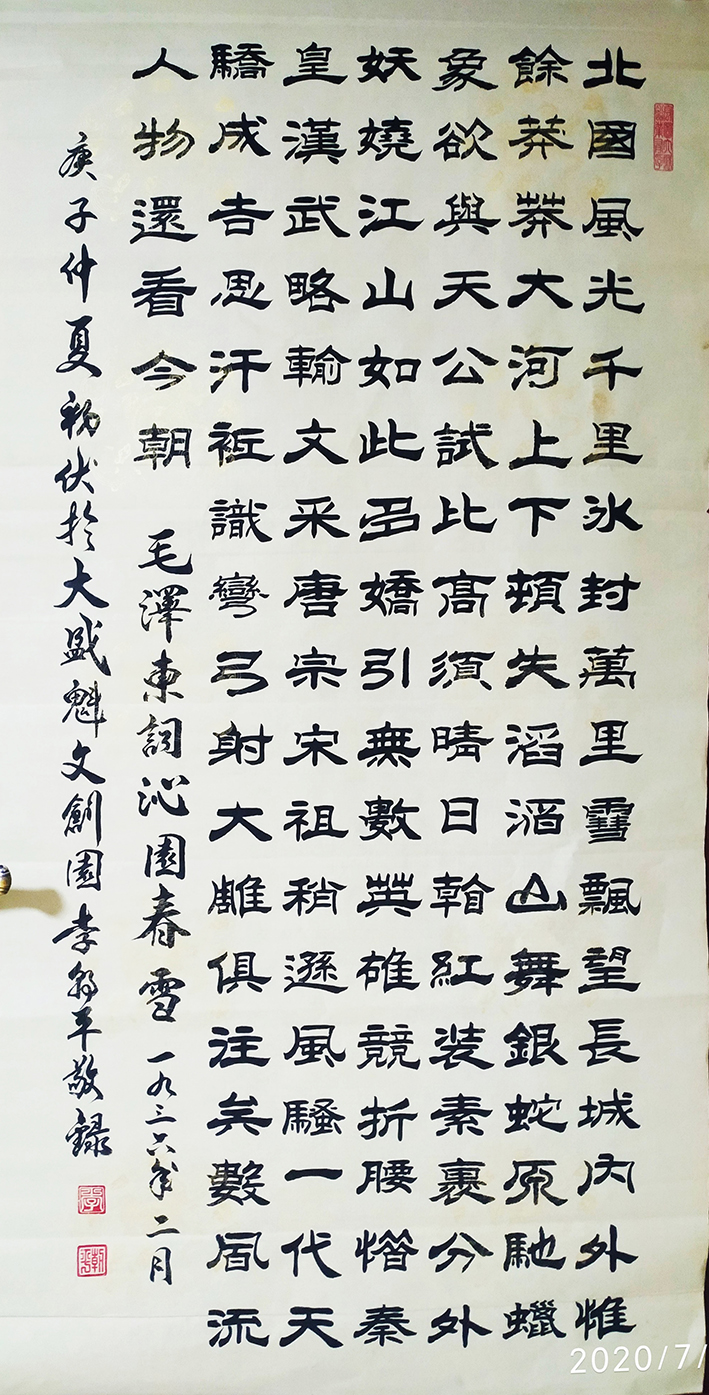 北國風光千里冰封萬里雪飄望長城內外惟
餘莽莽大河上下頓失滔滔山舞銀蛇原馳蠟
象欲與天公試比高須晴日看紅装素裹分外
妖嬈江山如此多嬌引無數英雄競折腰惜秦
皇漢武略輸文采唐宗宋祖稍遜風騷一代天
驕成吉思汗祗識彎弓射大雕俱往矣數風流
人物還看今朝 毛澤東詞沁園春雪 一九三六年二月
庚子仲夏初伏於大盛魁文創園李朝平敬錄
2020/7/